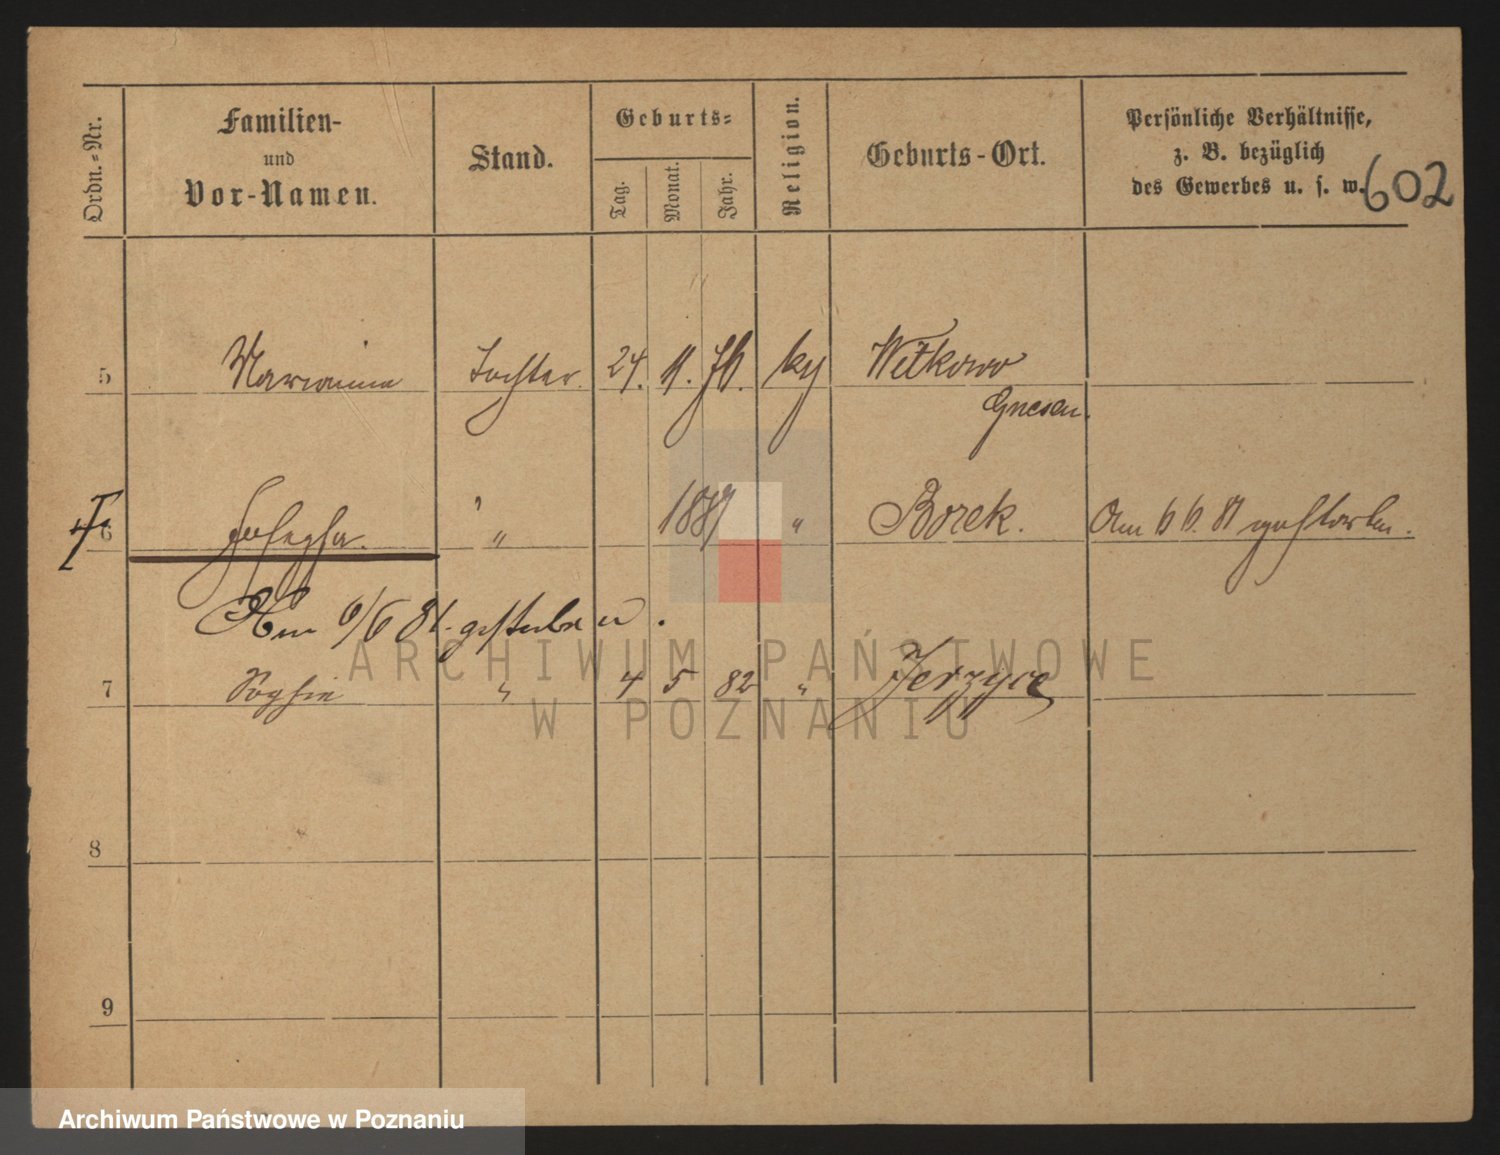 Ordn.=Nr.
Familien-
und
Vor-Namen.
Stand.
Geburts=
Tag.
Monat.
Jahr.
Religion.
Geburts-Ort.
Persönliche Verhältnisse,
z. B. bezüglich
des Gewerbes u. s. w.
602
5 Marianna Tochter 24. 11. 76. kg Witkowo
Gnesen.
6 Josepha. " " Borek. Am 6 6. 81 gestorben.
Am 6/6 81. gestorben.
7 Sophie " 4 5 82 " Jerzyce
8
9
ARCHIWUM PAŃSTWOWE
W POZNANIU
Archiwum Państwowe w Poznaniu